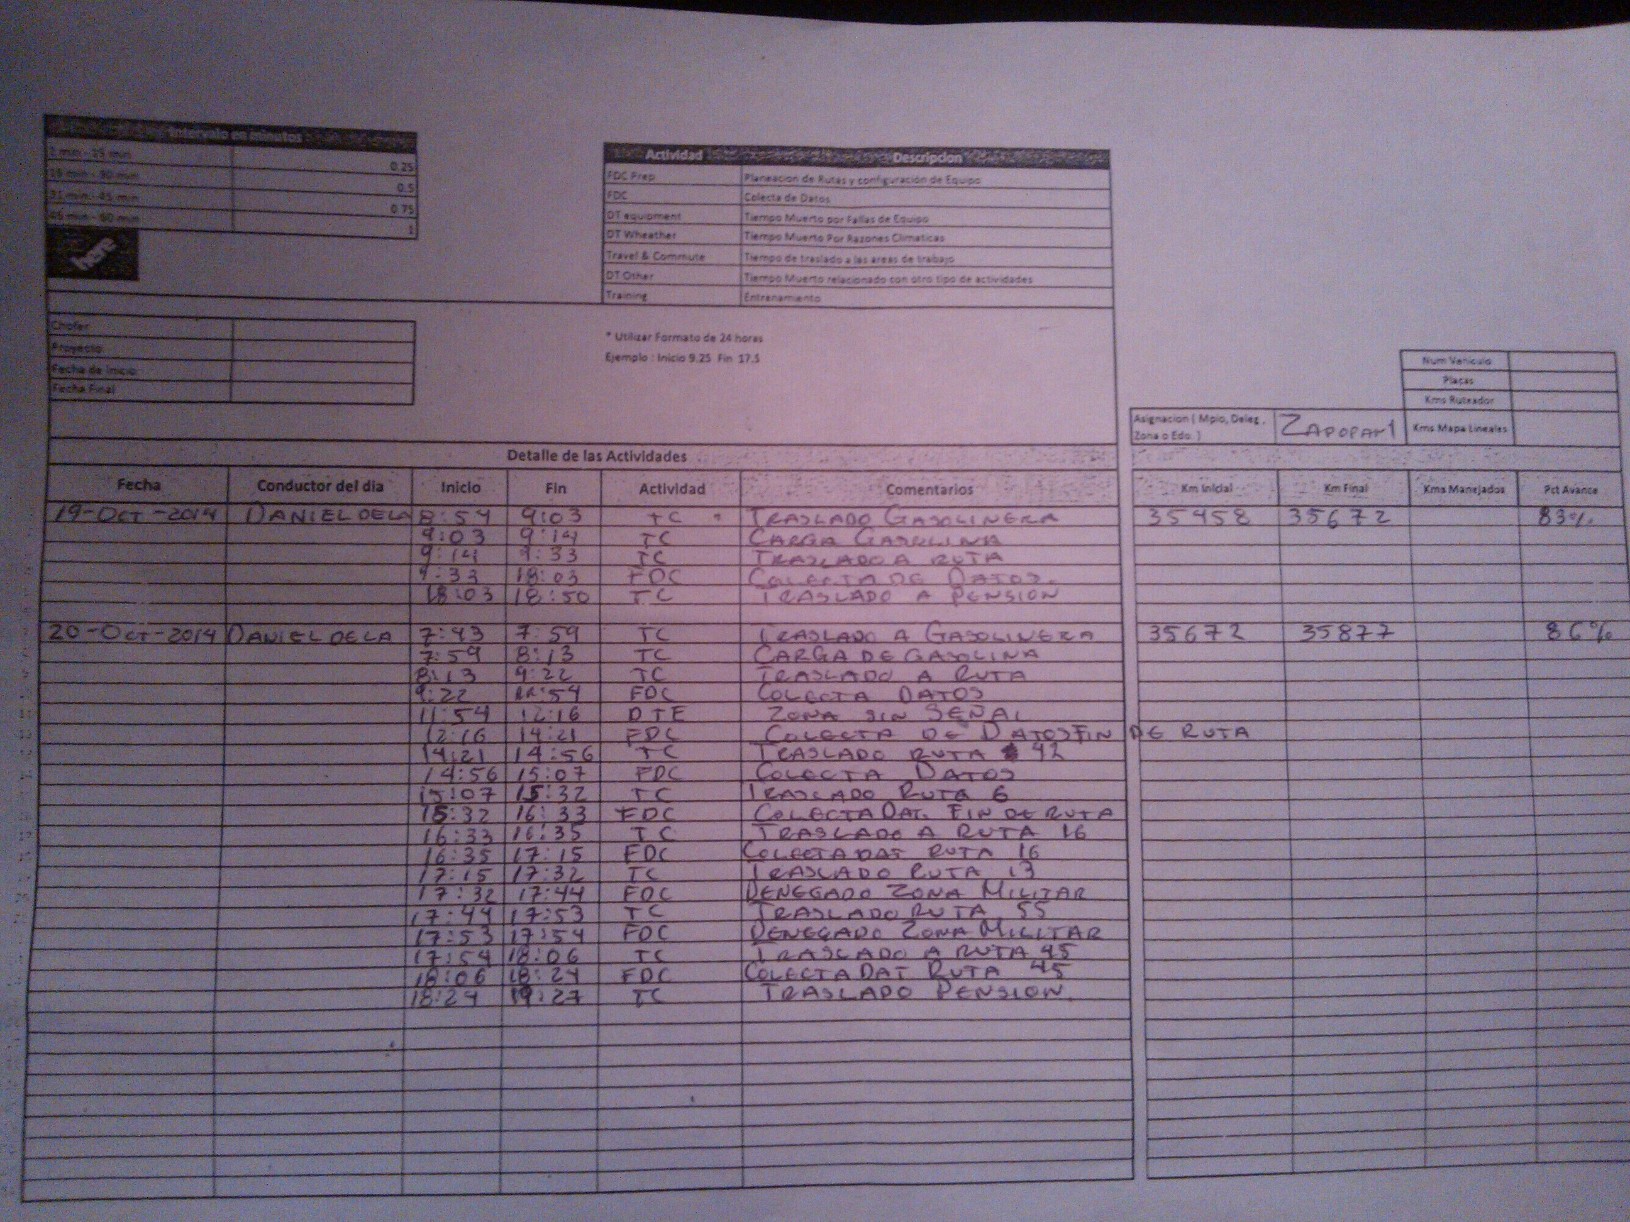 Intervalo en minutos
1 min - 15 min 0.25
16 min - 30 min 0.5
31 min - 45 min 0.75
46 min - 60 min 1
here
Actividad Descripcion
FDC Prep Planeacion de Rutas y configuración de Equipo
FDC Colecta de Datos
DT equipment Tiempo Muerto por Fallas de Equipo
DT Wheather Tiempo Muerto Por Razones Climaticas
Travel & Commute Tiempo de traslado a las areas de trabajo
DT Other Tiempo Muerto relacionado con otro tipo de actividades
Training Entrenamiento
Chofer
Proyecto
Fecha de Inicio
Fecha Final
* Utilizar Formato de 24 horas
Ejemplo : Inicio 9.25 Fin 17.5
Num Vehiculo
Placas
Kms Ruteador
Asignacion ( Mpio, Deleg, Zona o Edo. ) ZAPOPAN 1 Kms Mapa Lineales
Detalle de las Actividades
Fecha Conductor del dia Inicio Fin Actividad Comentarios Km Inicial Km Final Kms Manejados Pct Avance
19-OCT-2014 DANIEL DE LA 8:54 9:03 TC TRASLADO GASOLINERA 35458 35672 83%
9:03 9:14 TC CARGA GASOLINA
9:14 9:33 TC TRASLADO A RUTA
9:33 18:03 FDC COLECTA DE DATOS.
18:03 18:50 TC TRASLADO A PENSION
20-OCT-2014 DANIEL DE LA 7:43 7:59 TC TRASLADO A GASOLINERA 35672 35877 86%
7:59 8:13 TC CARGA DE GASOLINA
8:13 9:22 TC TRASLADO A RUTA
9:22 11:54 FDC COLECTA DATOS
11:54 12:16 DTE ZONA SIN SEÑAL
12:16 14:21 FDC COLECTA DE DATOS FIN DE RUTA
14:21 14:56 TC TRASLADO RUTA 42
14:56 15:07 FDC COLECTA DATOS
15:07 15:32 TC TRASLADO RUTA 6
15:32 16:33 FDC COLECTA DAT. FIN DE RUTA
16:33 16:35 TC TRASLADO A RUTA 16
16:35 17:15 FDC COLECTA DAT RUTA 16
17:15 17:32 TC TRASLADO RUTA 13
17:32 17:44 FDC DENEGADO ZONA MILITAR
17:44 17:53 TC TRASLADO RUTA 55
17:53 17:54 FDC DENEGADO ZONA MILITAR
17:54 18:06 TC TRASLADO A RUTA 45
18:06 18:24 FDC COLECTA DAT RUTA 45
18:24 19:27 TC TRASLADO PENSION.